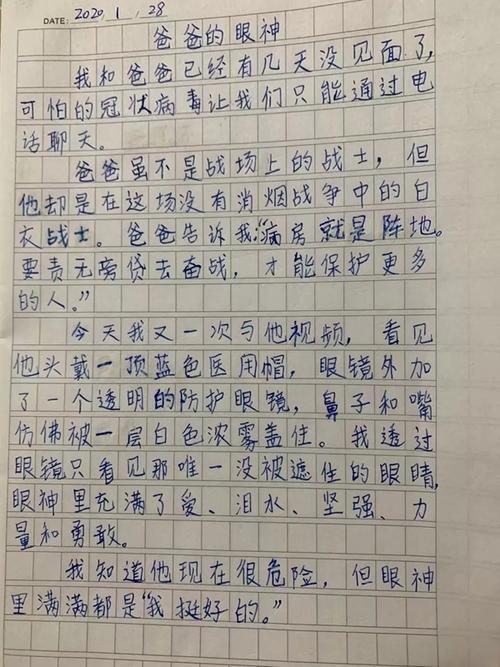 DATE: 2020, 1, 28
爸爸的眼神
我和爸爸已经有几天没见面了,
可怕的冠状病毒让我们只能通过电
话聊天。
爸爸虽不是战场上的战士，但
他却是在这场没有消烟战争中的白
衣战士。爸爸告诉我:"病房就是阵地。
要责无旁贷去奋战，才能保护更多
的人。"
今天我又一次与他视频，看见
他头戴一顶蓝色医用帽，眼镜外加
了一个透明的防护眼镜，鼻子和嘴
仿佛被一层白色浓雾盖住。我透过
眼镜只看见那唯一没被遮住的眼睛,
眼神里充满了爱、泪水、坚强、力
量和勇敢。
我知道他现在很危险，但眼神
里满满都是"我挺好的。"